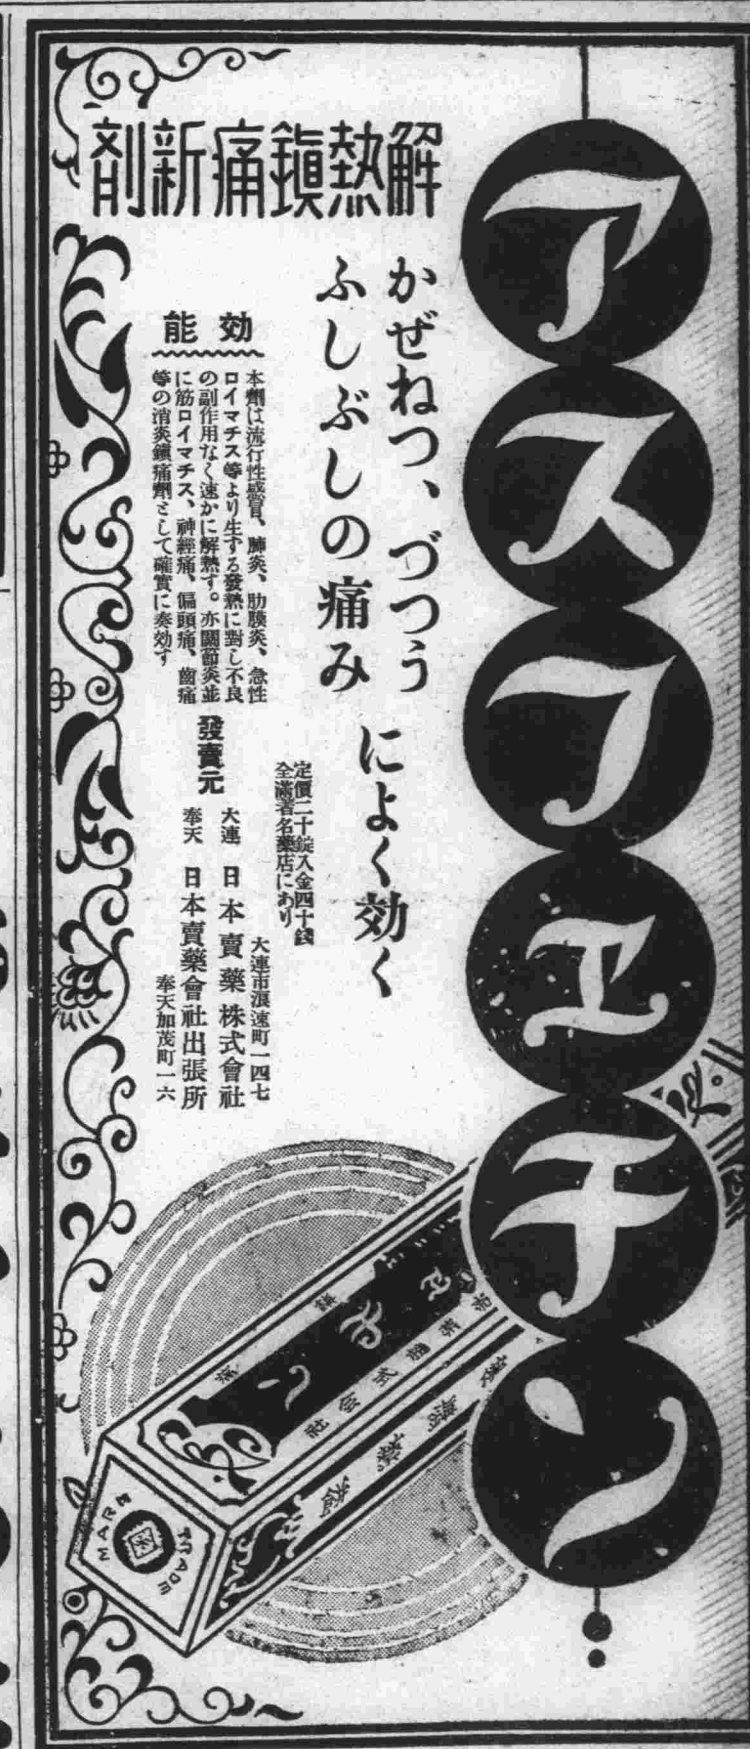 アスフェチン
解熱鎭痛新剤
かぜねつ、づつう
ふしぶしの痛み
によく効く
効能
本劑は流行性感冒、肺炎、肋膜炎、急性
ロイマチス等より生する發熱に對し不良
の副作用なく速かに解熱す。亦關節炎並
に筋ロイマチス、神經痛、偏頭痛、齒痛
等の消炎鎭痛劑として確實に奏効す
定價二十錠入金四十錢
全滿著名藥店にあり
發賣元
大連市浪速町一四七
大連 日本賣藥株式會社
奉天 日本賣藥會社出張所
奉天加茂町一六
TRADE
MARK